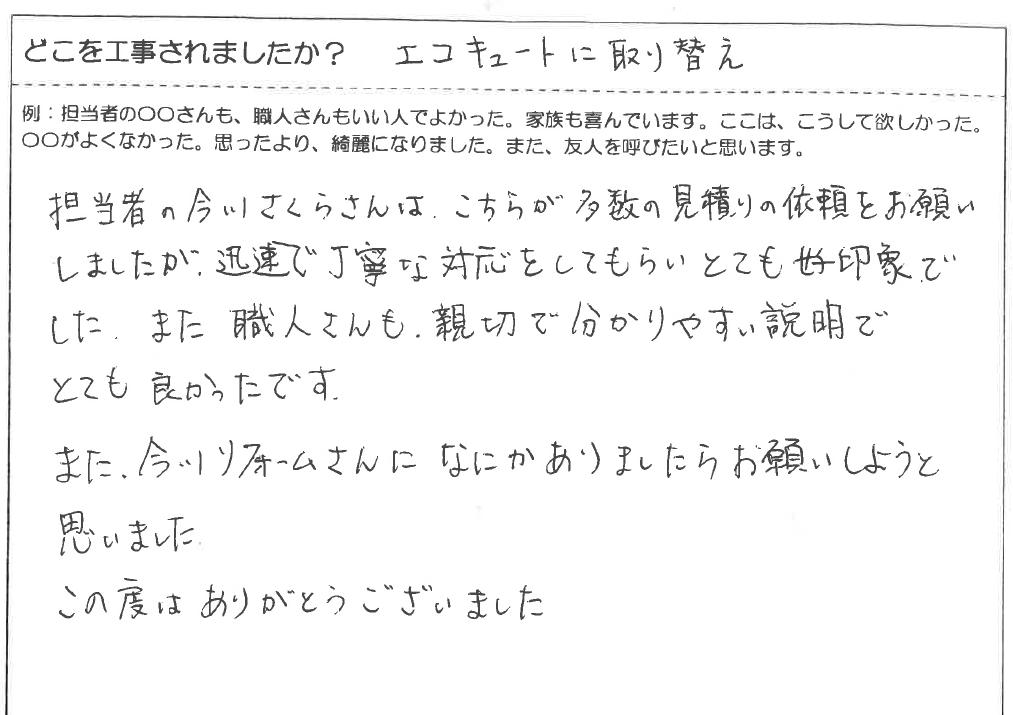 どこを工事されましたか？ エコキュートに取り替え
例：担当者の〇〇さんも、職人さんもいい人でよかった。家族も喜んでいます。ここは、こうして欲しかった。
〇〇がよくなかった。思ったより、綺麗になりました。また、友人を呼びたいと思います。
担当者の今川さくらさんは、こちらが多数の見積りの依頼をお願い
しましたが、迅速で丁寧な対応をしてもらいとても好印象で
した。また職人さんも、親切で分かりやすい説明で
とても良かったです。
また、今川リフォームさんになにかありましたらお願いしようと
思いました。
この度はありがとうございました